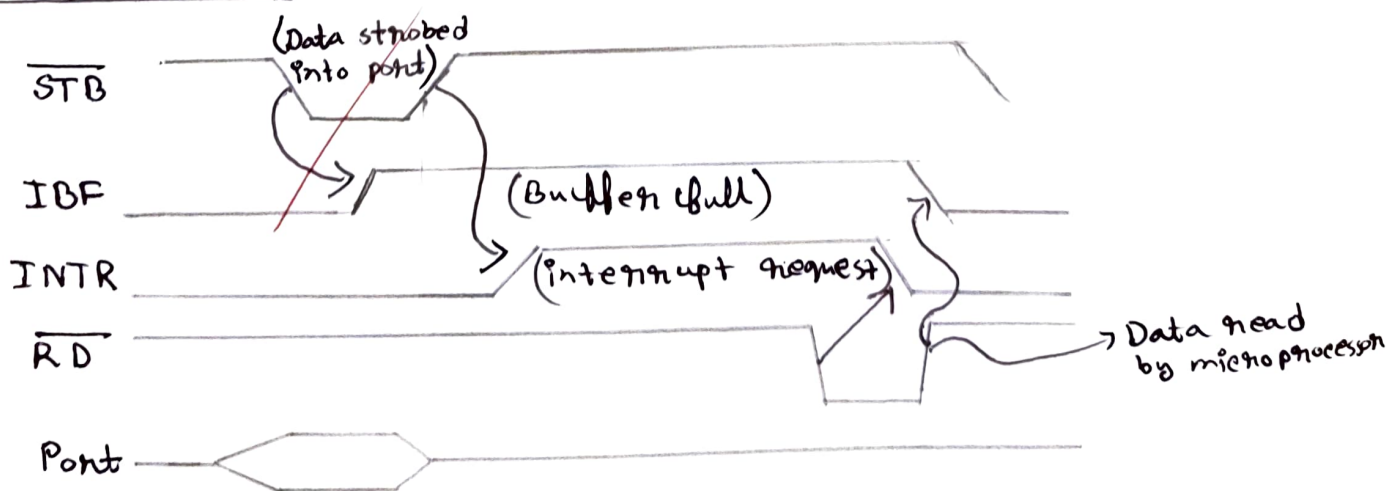 (Data strobed
into port)
S̅T̅B̅
IBF
(Buffer full)
INTR
(interrupt request)
R̅D̅
Data read
by microprocessor
Port